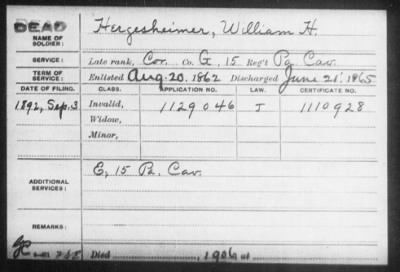 DEAD
NAME OF SOLDIER: Hergesheimer, William H.
SERVICE: Late rank, Cor. Co. G, 15 Reg't Pa Cav.
TERM OF SERVICE: Enlisted Aug. 20, 1862 Discharged June 21, 1865
DATE OF FILING. CLASS. APPLICATION NO. LAW. CERTIFICATE NO.
1892, Sep. 3 Invalid, 1129046 J 1110928
Widow,
Minor,
ADDITIONAL SERVICES: E, 15 Pa. Cav.
REMARKS:
Died , 190 at